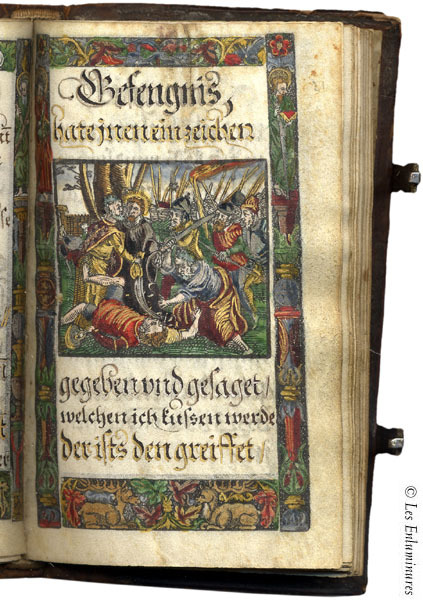 Gefengnis,
hate jnen ein zeichen
gegeben vnd gesaget/
welchen ich kussen werde
der ists den greiffet/
© Les Enluminures